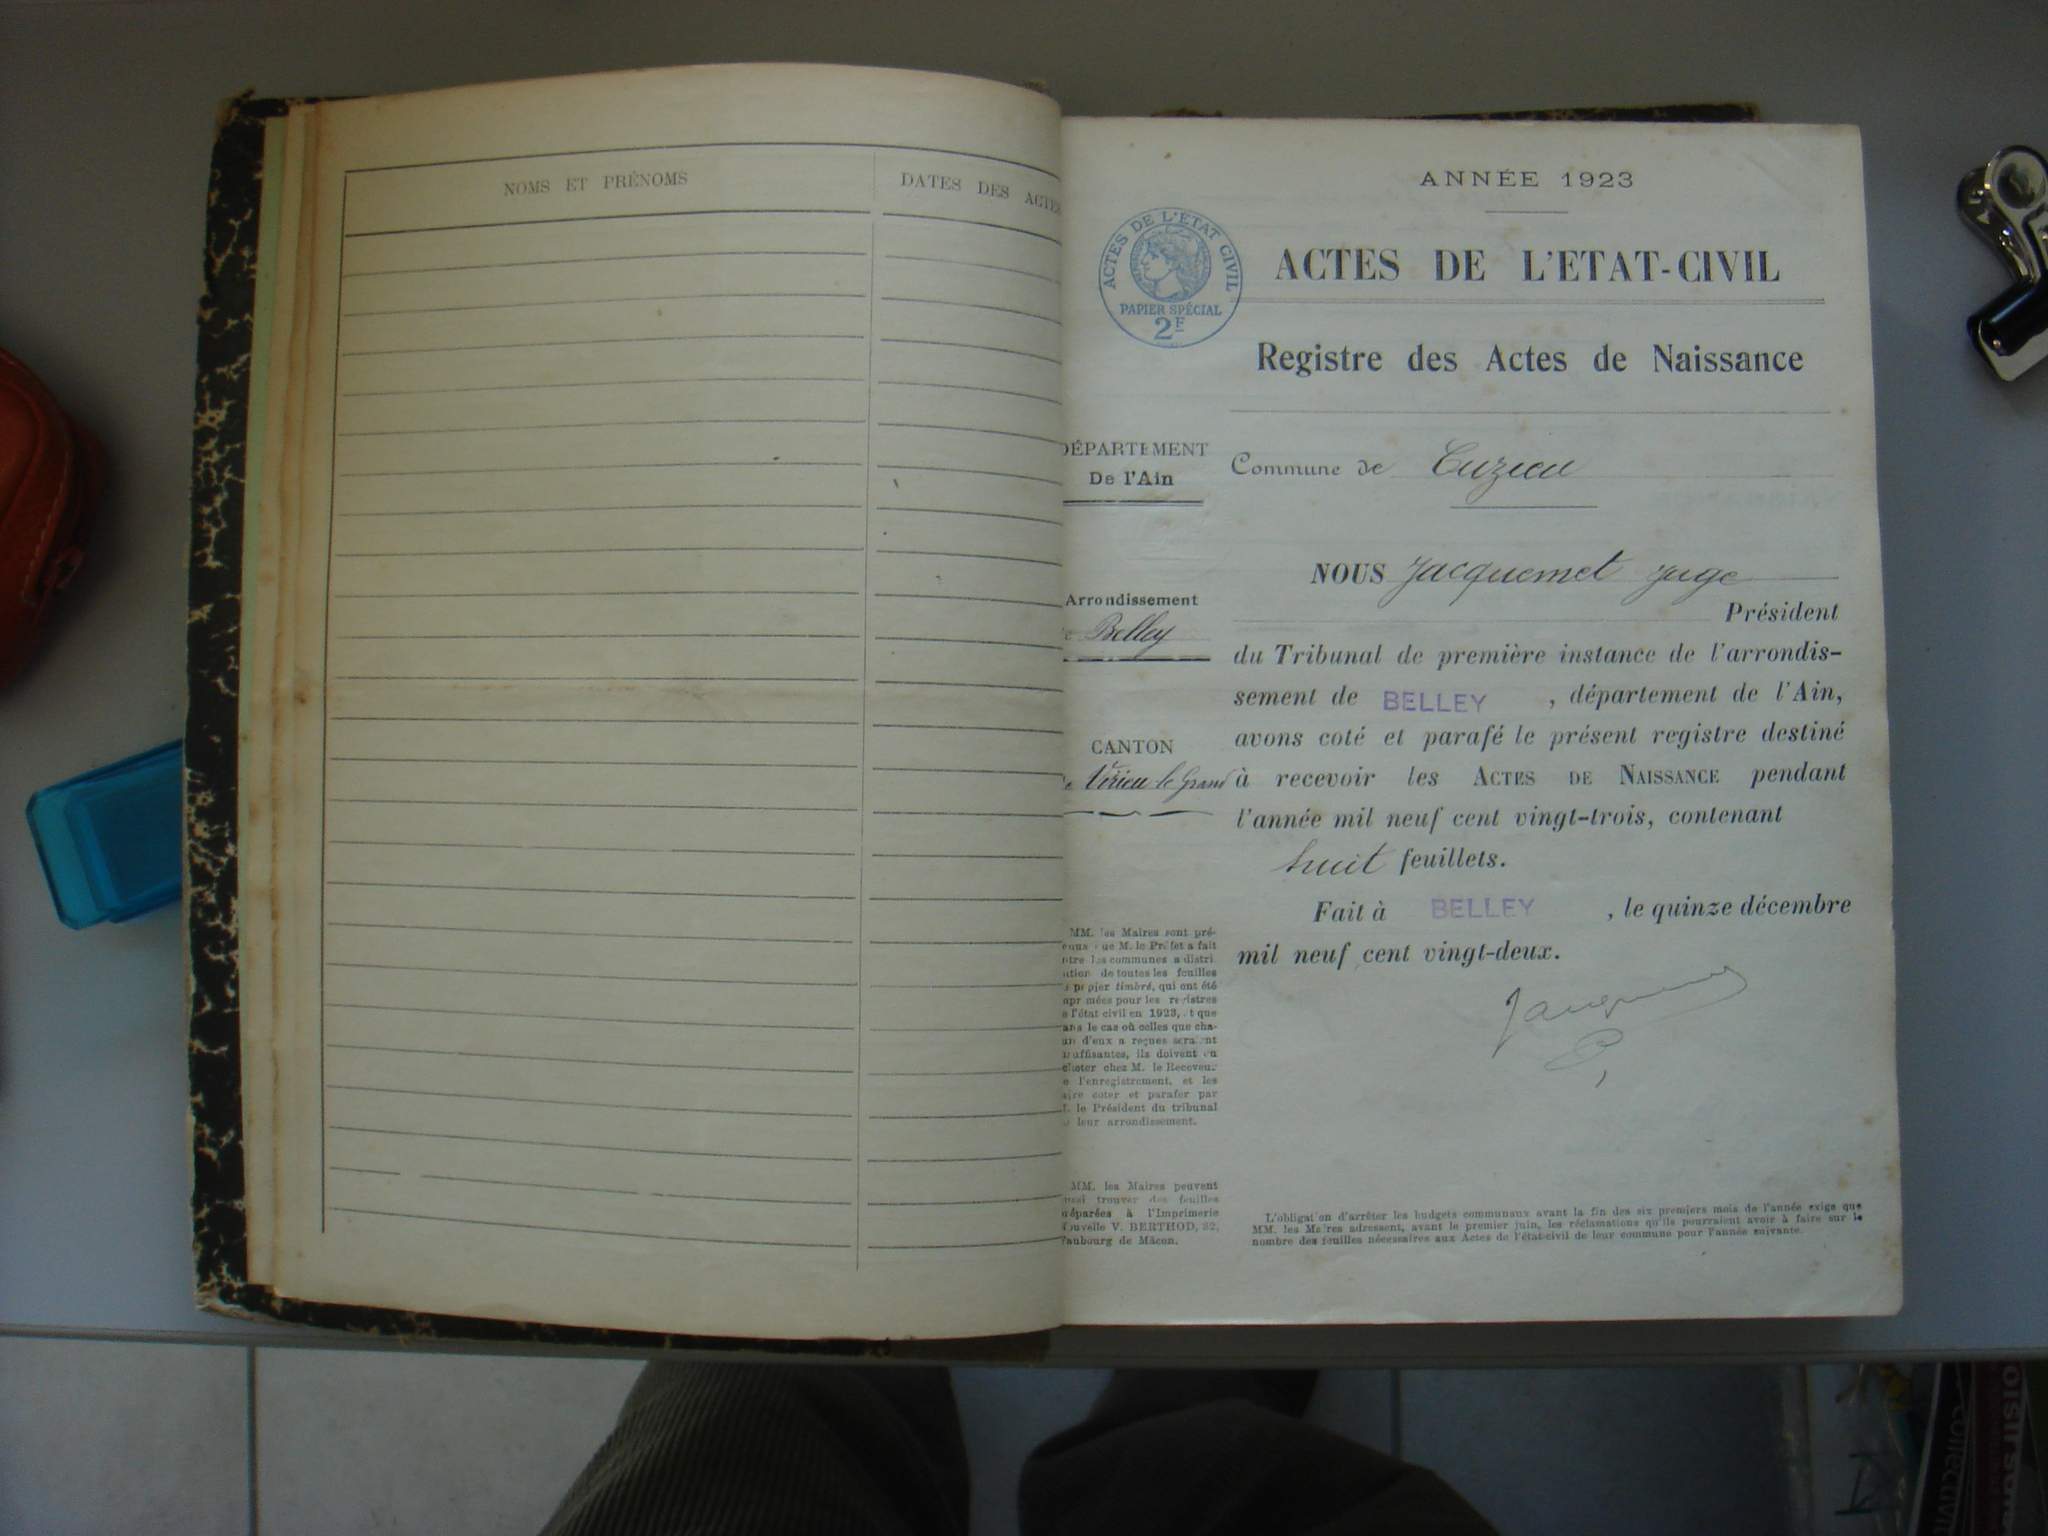 NOMS ET PRÉNOMS
DATES DES ACTES
ANNÉE 1923
ACTES DE L'ÉTAT CIVIL
PAPIER SPÉCIAL
2F
ACTES DE L'ETAT-CIVIL
Registre des Actes de Naissance
DÉPARTEMENT
De l'Ain
Commune de Cuzieu
Arrondissement
Belley
CANTON
Virieu le Grand
NOUS Jacquemet Juge
Président
du Tribunal de première instance de l'arrondis-
sement de BELLEY , département de l'Ain,
avons coté et parafé le présent registre destiné
à recevoir les ACTES DE NAISSANCE pendant
l'année mil neuf cent vingt-trois, contenant
huit feuillets.
Fait à BELLEY , le quinze décembre
mil neuf cent vingt-deux.
MM. les Maires sont pré-
que M. le Préfet a fait
les communes a distri
de toutes les feuilles
papier timbré, qui ont été
mées pour les registres
l'état civil en 1923, et que
le cas où celles que cha-
d'eux a reçues seraient
ils doivent en
chez M. le Receveur
l'enregistrement, et les
coter et parafer par
le Président du tribunal
leur arrondissement.
MM. les Maires peuvent
trouver des feuilles
à l'Imprimerie
V. BERTHOD, 82,
Faubourg de Mâcon.
L'obligation d'arrêter les budgets communaux avant la fin des six premiers mois de l'année exige que
MM. les Maires adressent, avant le premier juin, les réclamations qu'ils pourraient avoir à faire sur le
nombre des feuilles nécessaires aux Actes de l'état-civil de leur commune pour l'année suivante.